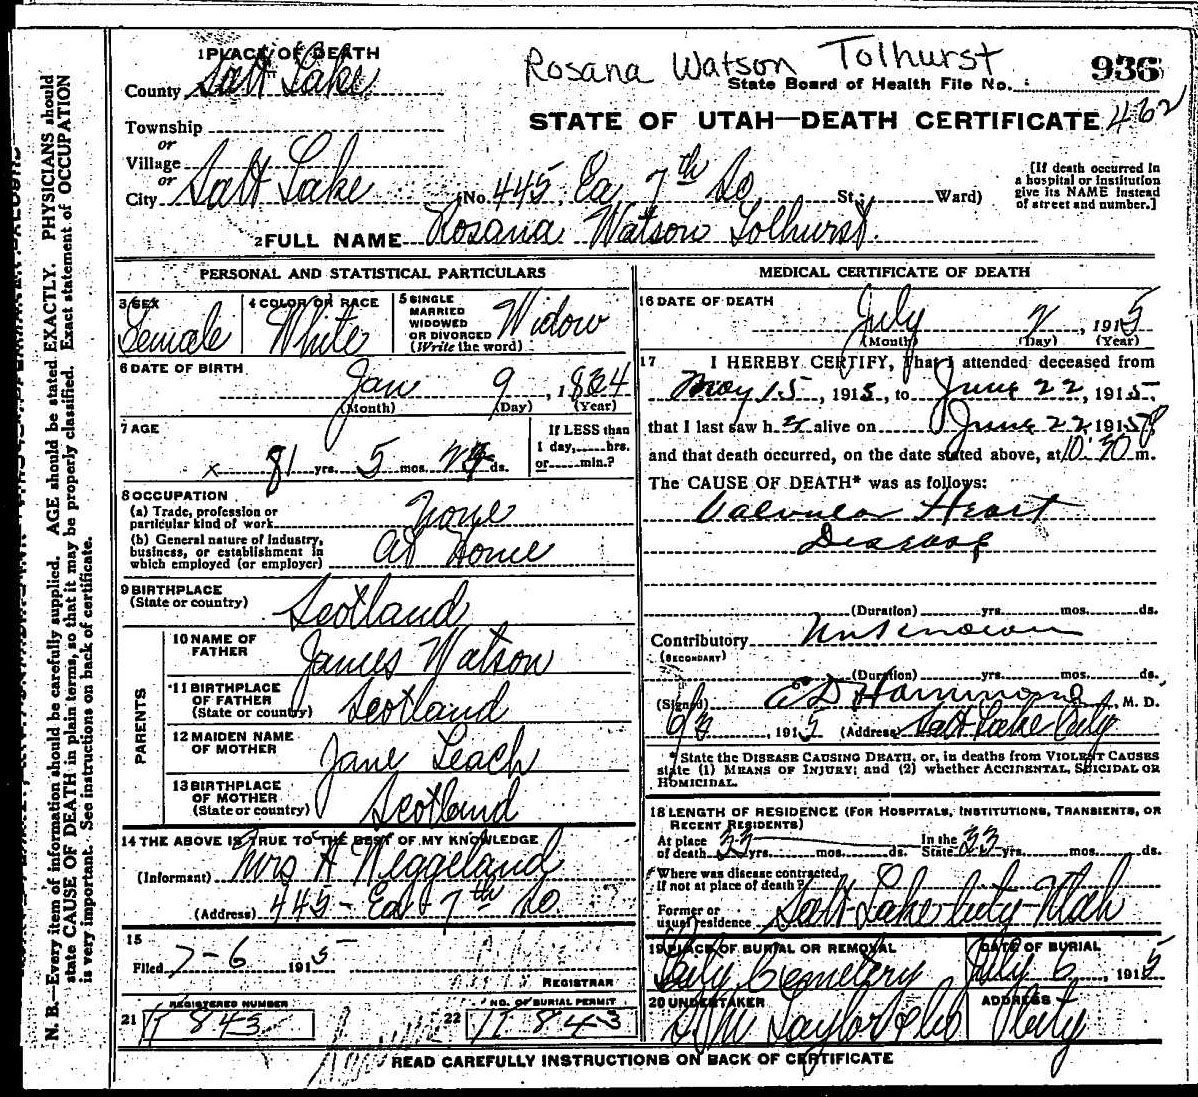 1 PLACE OF DEATH
Rosana Watson Tolhurst
936
County Salt Lake
State Board of Health File No.
Township
STATE OF UTAH—DEATH CERTIFICATE 462
or
Village
or
City Salt Lake (No. 445 Ea 7th So St.; Ward)
[If death occurred in a hospital or institution give its NAME instead of street and number.]
2 FULL NAME Rosana Watson Tolhurst.
PERSONAL AND STATISTICAL PARTICULARS
3 SEX Female
4 COLOR OR RACE White
5 SINGLE MARRIED WIDOWED OR DIVORCED (Write the word) Widow
6 DATE OF BIRTH
Jan 9, 1834
(Month) (Day) (Year)
7 AGE
81 yrs. 5 mos. ds.
If LESS than 1 day,......hrs. or......min.?
8 OCCUPATION
(a) Trade, profession or particular kind of work None
(b) General nature of industry, business, or establishment in which employed (or employer) at Home
9 BIRTHPLACE (State or country) Scotland
PARENTS
10 NAME OF FATHER James Watson
11 BIRTHPLACE OF FATHER (State or country) Scotland
12 MAIDEN NAME OF MOTHER Jane Leach
13 BIRTHPLACE OF MOTHER (State or country) Scotland
14 THE ABOVE IS TRUE TO THE BEST OF MY KNOWLEDGE
(Informant) Mrs H Weggeland
(Address) 445 - East 7th So.
15
Filed 7-6 1915
REGISTRAR
REGISTERED NUMBER
21 11843
NO. OF BURIAL PERMIT
22 11843
MEDICAL CERTIFICATE OF DEATH
16 DATE OF DEATH
July 2, 1915
(Month) (Day) (Year)
17 I HEREBY CERTIFY, That I attended deceased from
May 15, 1915, to June 22, 1915,
that I last saw h er alive on June 22, 1915
and that death occurred, on the date stated above, at 10:30 m.
The CAUSE OF DEATH* was as follows:
Valvular Heart
Disease
(Duration) yrs. mos. ds.
Contributory Unknown
(SECONDARY)
(Duration) yrs. mos. ds.
(Signed) Hammond, M. D.
1915 (Address) Salt Lake City
* State the DISEASE CAUSING DEATH, or, in deaths from VIOLENT CAUSES
state (1) MEANS OF INJURY; and (2) whether ACCIDENTAL, SUICIDAL OR
HOMICIDAL.
18 LENGTH OF RESIDENCE (FOR HOSPITALS, INSTITUTIONS, TRANSIENTS, OR
RECENT RESIDENTS)
At place of death 33 yrs. mos. ds. In the State 33 yrs. mos. ds.
Where was disease contracted, if not at place of death?
Former or usual residence Salt Lake City Utah
19 PLACE OF BURIAL OR REMOVAL City Cemetery
DATE OF BURIAL July 6, 1915
20 UNDERTAKER S M Taylor & Co
ADDRESS City
READ CAREFULLY INSTRUCTIONS ON BACK OF CERTIFICATE
N. B.—Every item of information should be carefully supplied. AGE should be stated EXACTLY. PHYSICIANS should
state CAUSE OF DEATH in plain terms, so that it may be properly classified. Exact statement of OCCUPATION
is very important. See instructions on back of certificate.